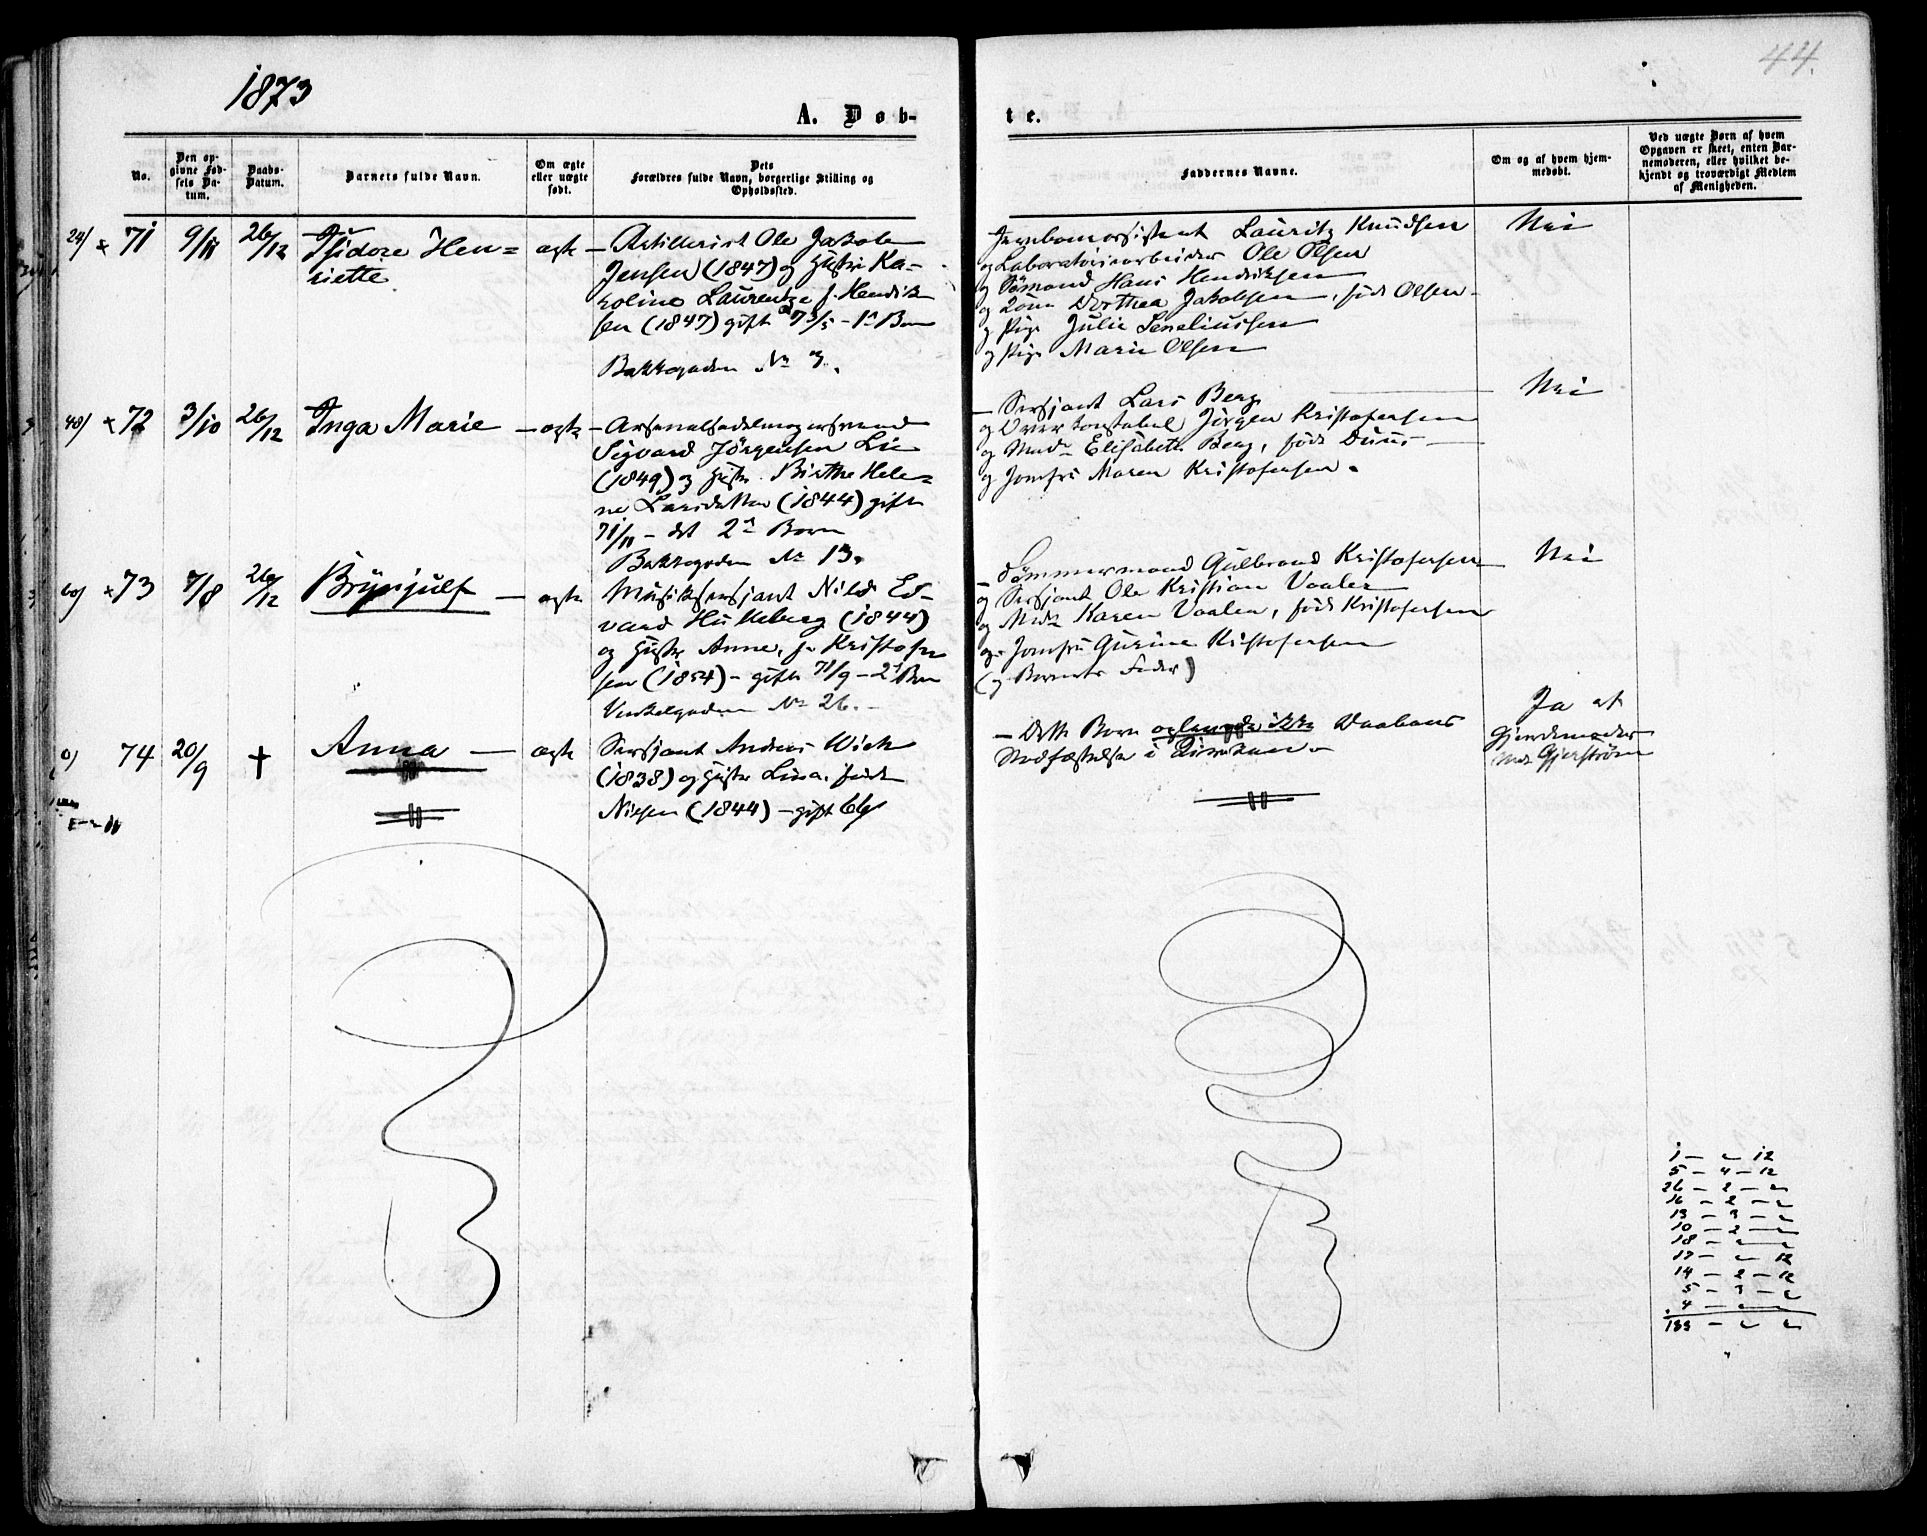 1873
44.
A. Døb-
te.
No.
Den op-
givne Fød-
sels Da-
tum.
Daabs-
Datum.
Barnets fulde Navn.
Om ægte
eller uægte
født.
Dets
Forældres fulde Navn, borgerlige Stilling og
Opholdssted.
Faddernes Navne.
Om og af hvem hjem-
medøbt.
Ved uægte Børn af hvem
Opgaven er skeet, enten Bar-
nemoderen, eller hvilket be-
kjendt og troværdigt Medlem
af Menigheden.
24) × 71 9/11 26/12 Isidore Hen=
riette
ægte – Artillerist Ole Jakob
Jensen (1847) og Hustru Ka-
roline Laurentze f. Hendrik
sen (1847) gift 73/5 – 1ste Barn
Bakkegaden No 3.
Jernbaneassistent Lauritz Knudsen
og Laboratoriearbeider Ole Olsen
og Sømand Hans Hendriksen
og Kone Dorthea Jakobsen, født Olsen
og Pige Julie Seneliussen
og Pige Marie Olsen
Nei
48) × 72 3/10 26/12 Inga Marie – ægte
– Arsenalsadelmagersvend
Sigvard Jörgensen Lie
(1849) og Hustr. Birthe Hele=
ne Larsdatter (1844) gift
71/11 – det 2det Barn
Bakkegaden No 13.
– Sersjant Lars Berg
og Overkonstabel Jörgen Kristofersen
og Mad. Elisabeth Berg, født Duus
og Jomfru Maren Kristofersen.
Nei
60) × 73 7/8 26/12 Brynjulf – ægte
Musiksersjant Nils Ed-
vard Hukeberg (1844)
og Hustr Anne, f. Kristofer
sen (1854) – gift 71/9 – 2det Barn
Vinkelgaden No 26. –
– Tømmermand Gulbrand Kristofersen
og Sersjant Ole Kristian Vaaler
og Mad. Karen Vaaler, født Kristofersen
og Jomfru Gurine Kristofersen
(og Barnets Fader)
Nei
0) 74 20/9 † Anna – ægte
Sersjant Andreas Wick
(1838) og Hustr Lina. født
Nilsen (1844) – gift 66
– Dette Barn oplevede ikke Daabens
Stadfæstelse i Kirken. –
Ja af
Gjordemoder
Mad. Gjerström
1 – 12
5 – 4 – 12
26 – 2 –
16 – 2 –
13 – 3 –
10 – 2 –
18 –
17 – 12
14 – 2 – 12
5 – 3 –
4 –